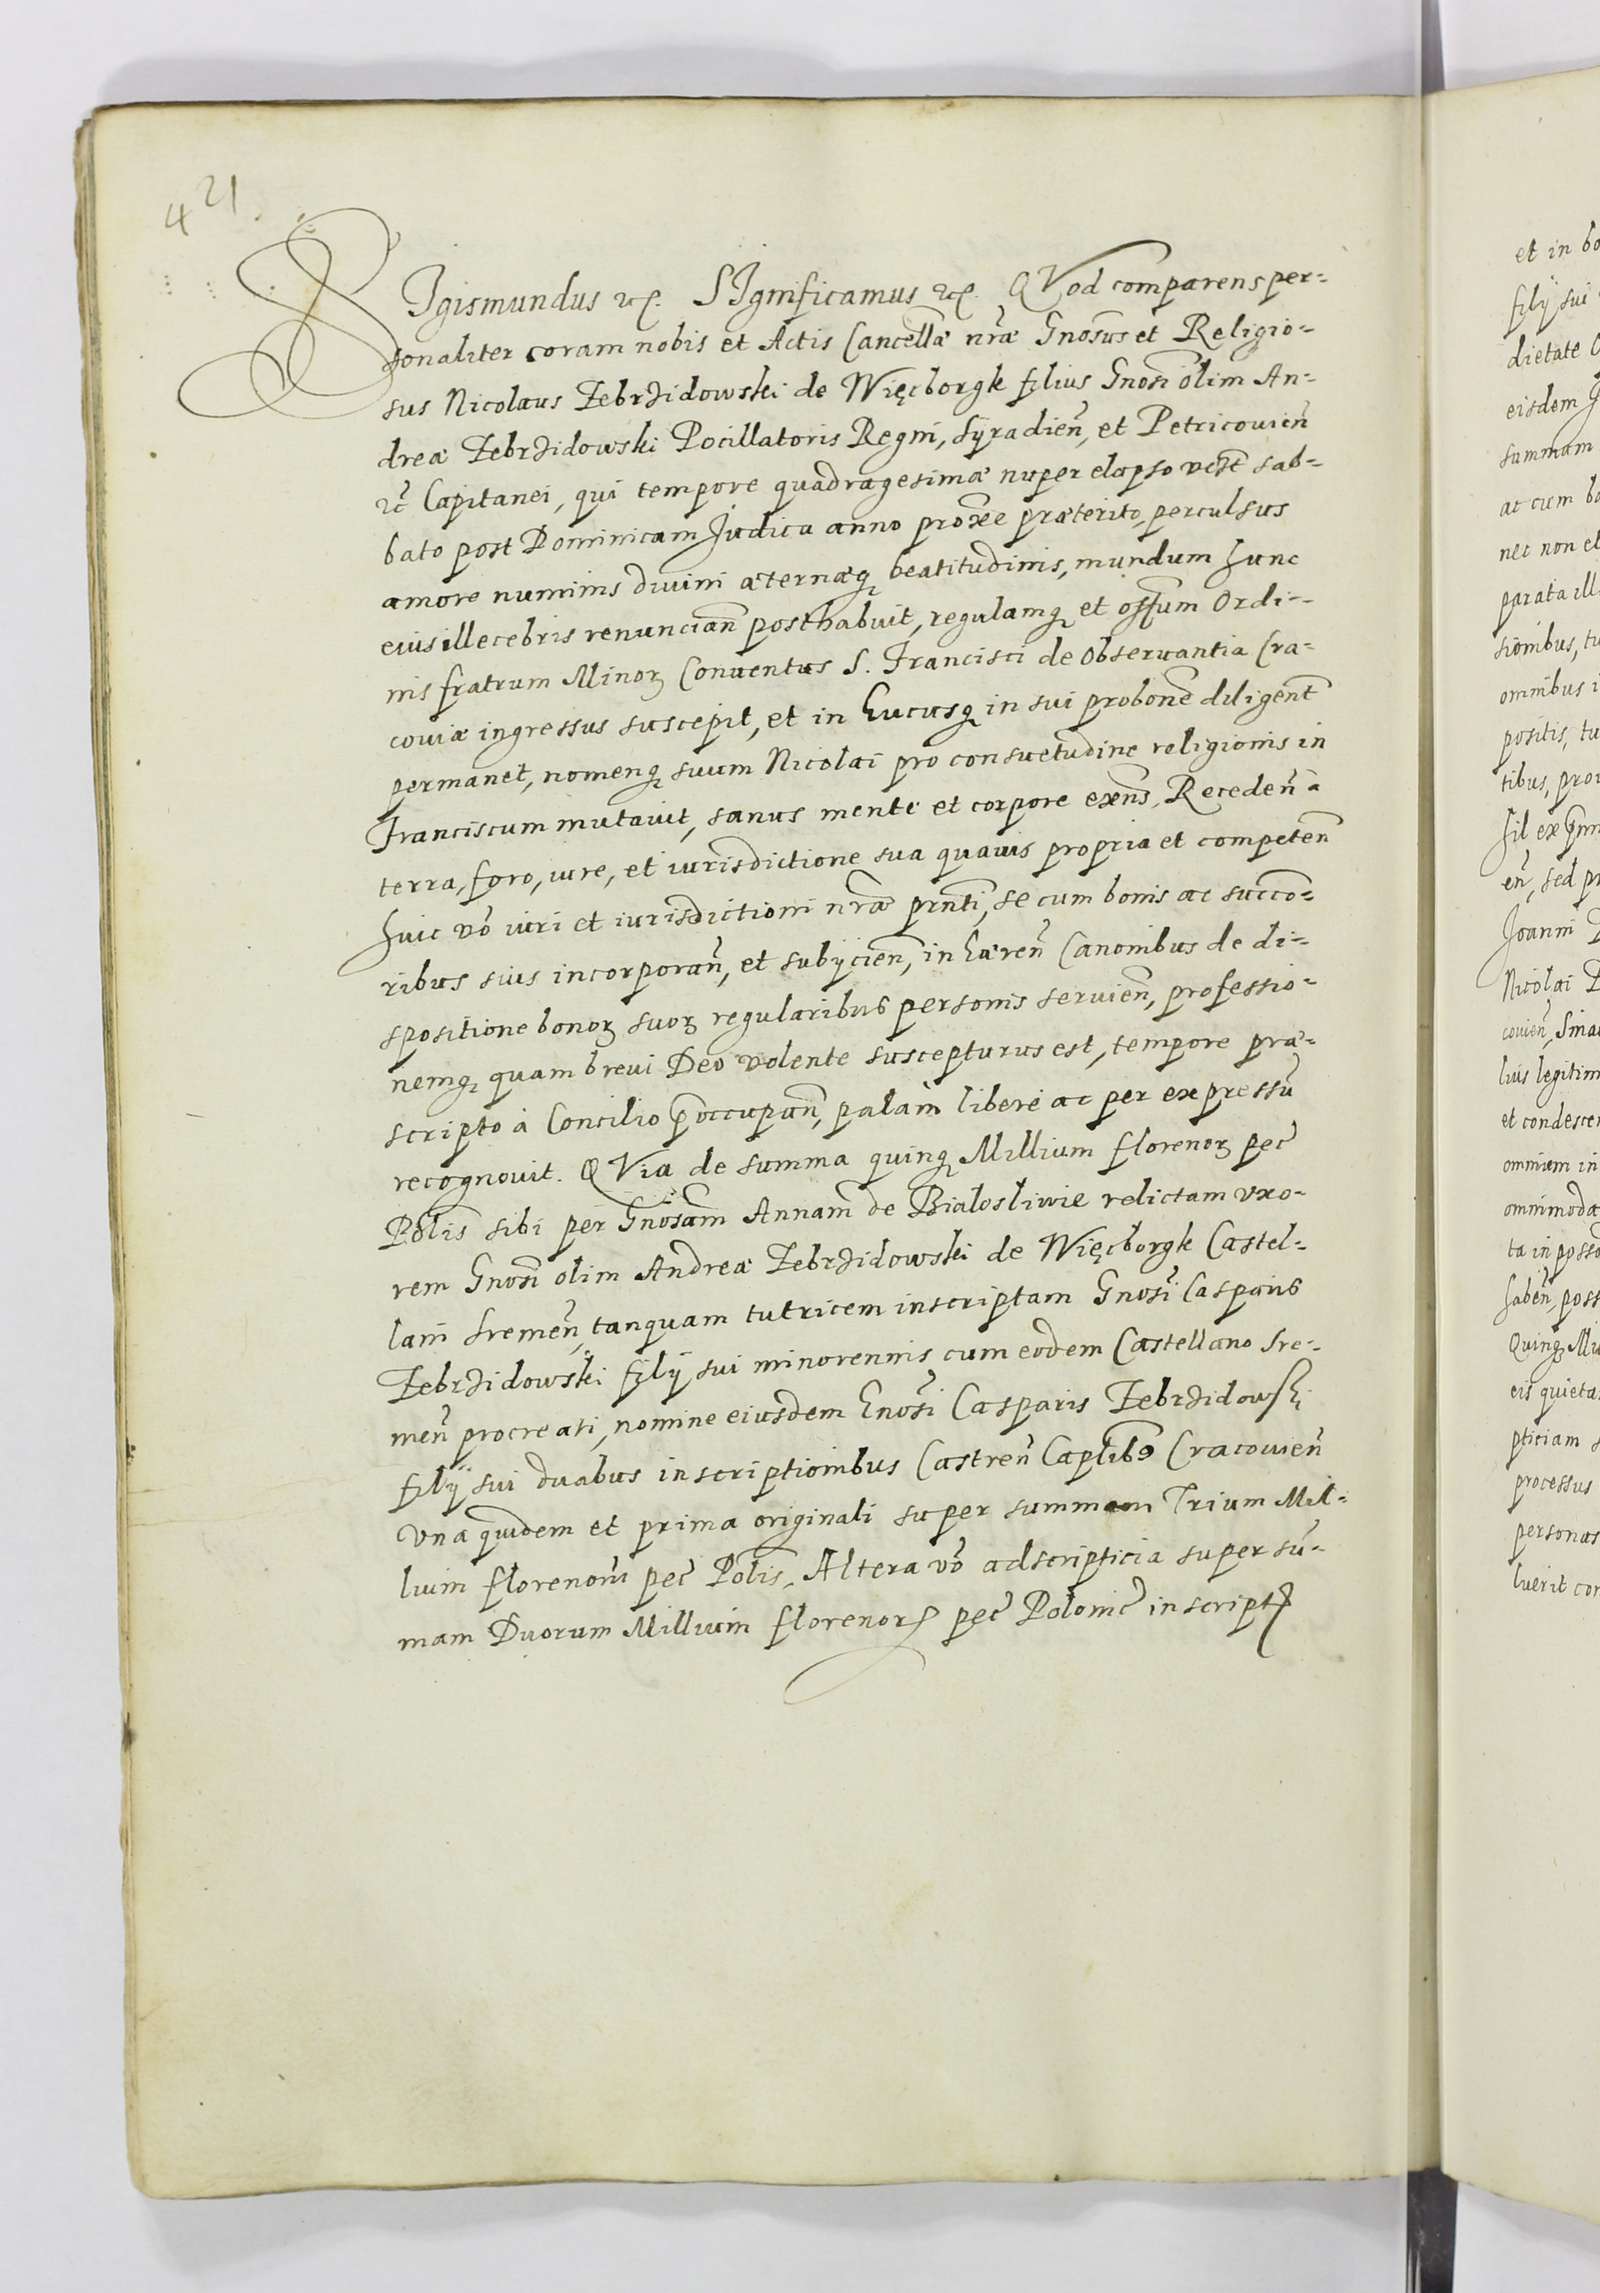 421.
SIgismundus etc. SIgnificamus etc. QVod comparens per-
sonaliter coram nobis et Actis Cancellæ nræ Gnosus et Religio-
sus Nicolaus Zebrzidowski de Więcborgk filius Gnosi olim An-
dreæ Zebrzidowski Pocillatoris Regni, Syradien, et Petricouien
etc Capitanei, qui tempore quadragesimæ nuper elapso vcst sab-
bato post Dominicam Judica anno proxee præterito, perculsus
amore numinis divini æternæq beatitudinis, mundum hunc
eius illecebris renuncian posthabuit, regulamq et ossum Ordi-
nis fratrum Minoꝝ Conuentus S. Francisci de Obseruantia Cra-
couiæ ingressus suscepit, et in hucusq in sui probone diligent
permanet, nomenq suum Nicolai pro consuetudine religionis in
Franciscum mutauit, sanus mente et corpore exens, Receden a
terra, foro, iure, et iurisdictione sua quauis propria et competen
huic vo iuri et iurisdictioni nræ prnti, se cum bonis ac succo-
ribus suis incorporan, et subijcien, inhæren Canonibus de di-
spositione bonoꝝ suoꝝ regularibus personis seruien, professio-
nemq quam breui Deo volente suscepturus est, tempore præ-
scripto à Concilio p̄occupan, palàm liberè ac per expressu
recognouit. QVia de summa quinq Millium florenoꝝ pec
Polis sibi per Gnosam Annam de Bialosliwie relictam vxo-
rem Gnosi olim Andreæ Zebrzidowski de Więcborgk Castel-
lani Sremen, tanquam tutricem inscriptam Gnosi Casparis
Zebrzidowski filij sui minorennis cum eodem Castellano Sre-
men procreati, nomine eiusdem Gnosi Casparis Zebrzidowski
filij sui duabus inscriptionibus Castren Caplibꝰ Cracouien
Vna quidem et prima originali super summam Trium Mil-
lium florenoru pec Polis, Altera vo adscripticia super su-
mam Duorum Millium florenorꝝ pec Polonic inscript
et in bo
filij sui
dietate
eisdem
summam
ac cum bo
nec non et
parata ill
sionibus, tu
omnibus i
positis, tu
tibus, pro
en, sed pr
Joanni
Nicolai
couien,
lius legitim
et condescen
omnium in
omnimodæ
ta in posso
haben, poss
Quinq Mi
eis quieta
pticiam
processus
personas
luerit con